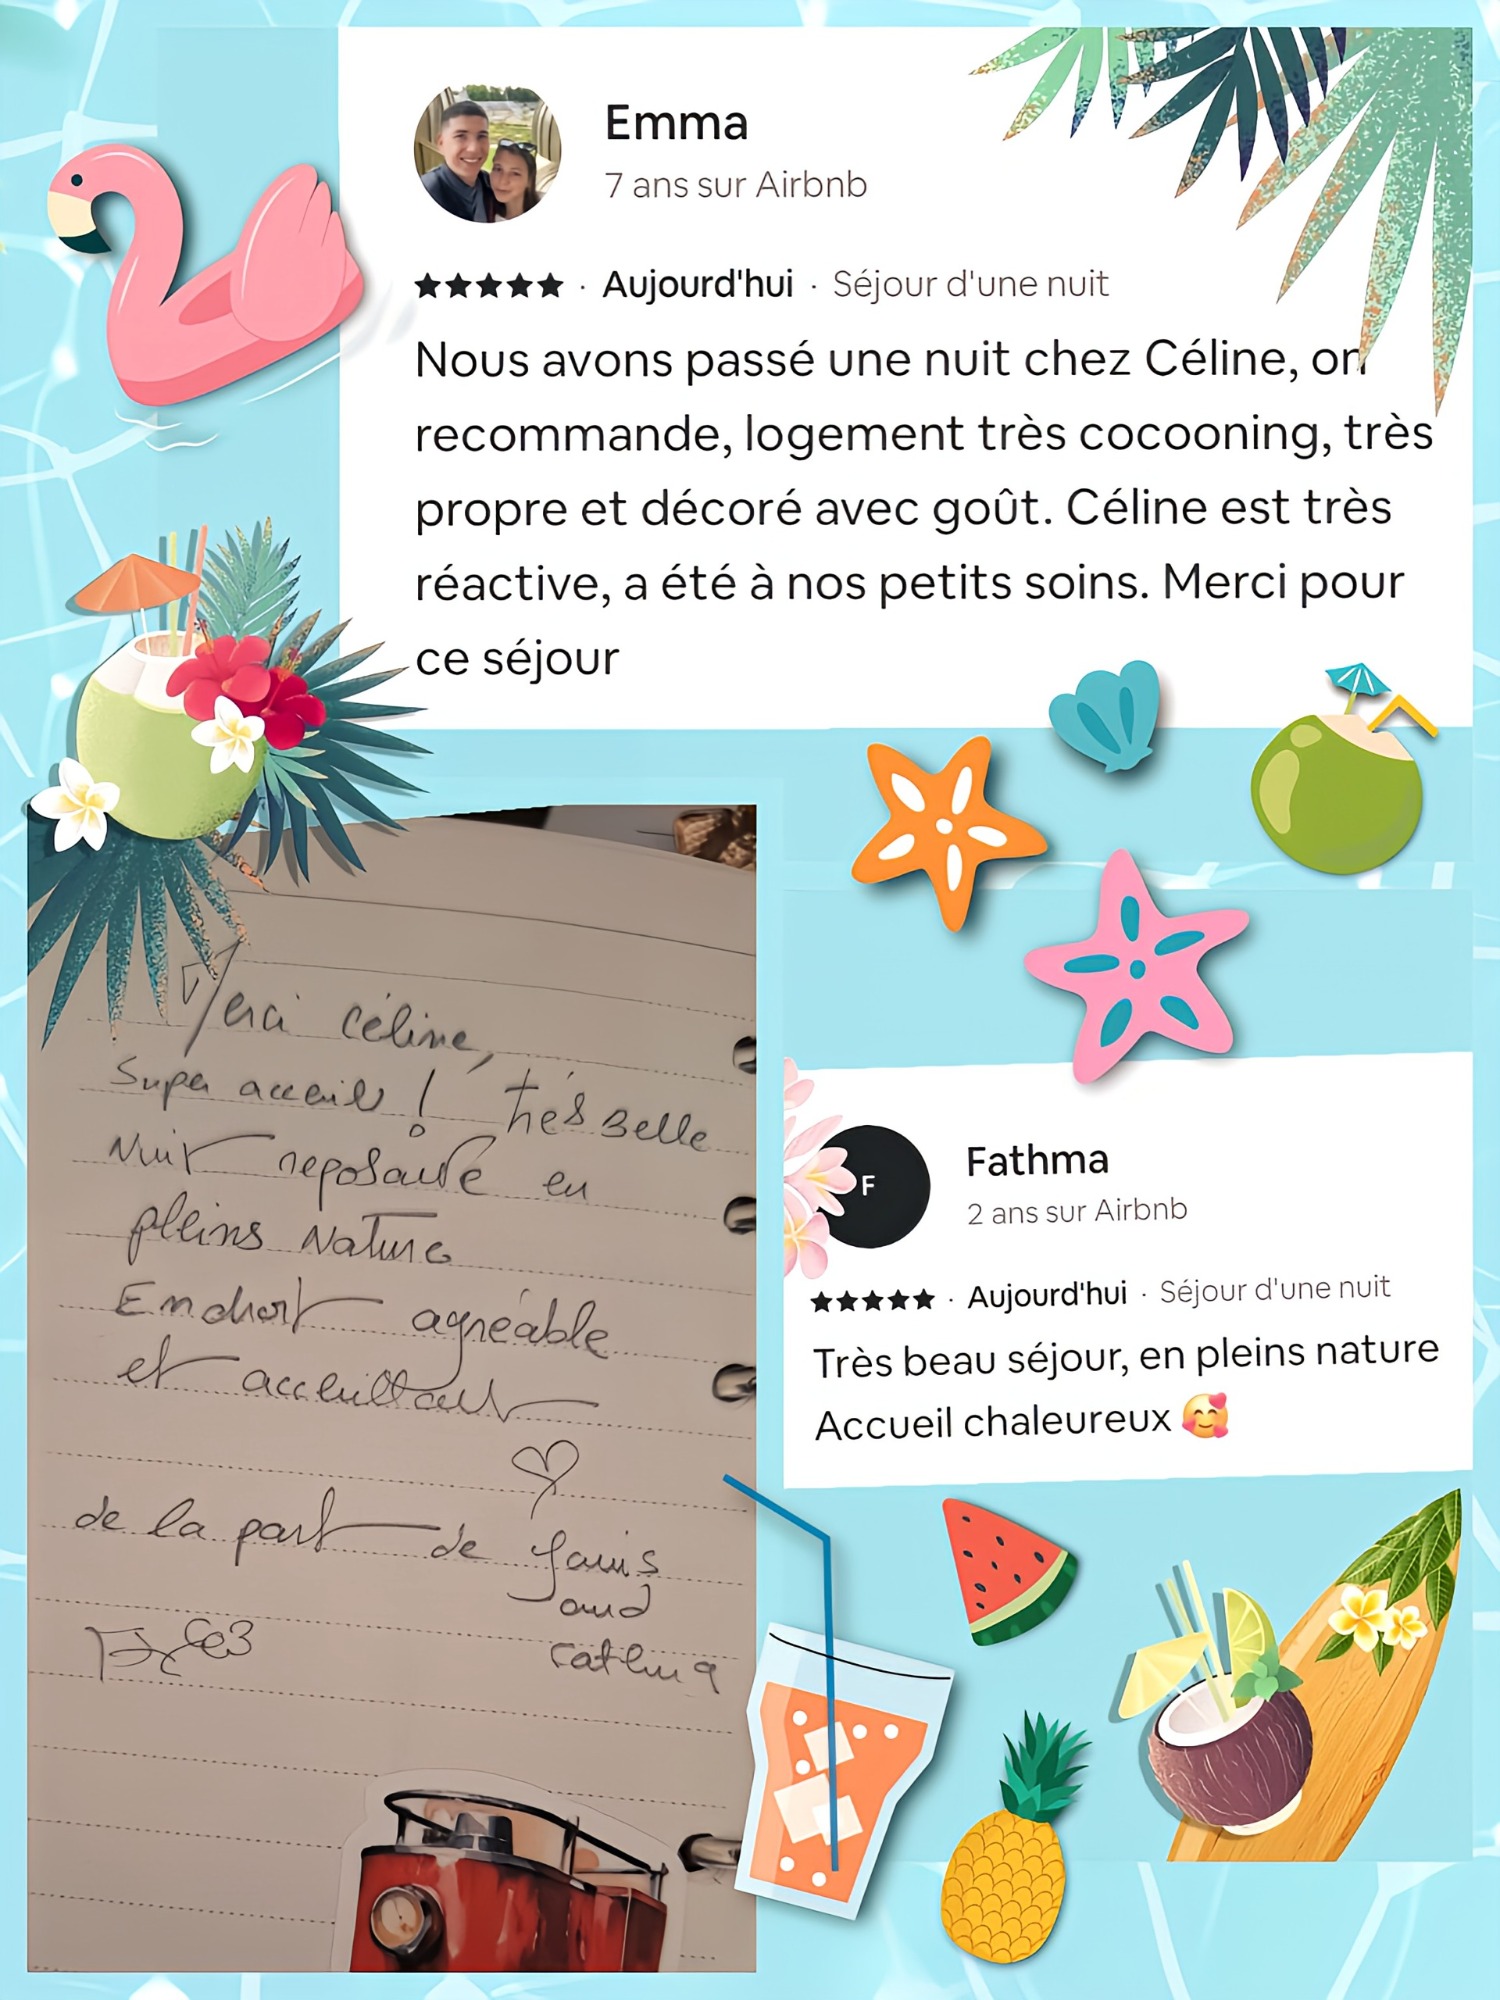 Emma
7 ans sur Airbnb
★★★★★ · Aujourd'hui · Séjour d'une nuit
Nous avons passé une nuit chez Céline, on
recommande, logement très cocooning, très
propre et décoré avec goût. Céline est très
réactive, a été à nos petits soins. Merci pour
ce séjour
Merci céline,
Super acceuil ! très Belle
Nuit reposante en
pleins Nature
Endroit agréable
et acceuillant
de la part de Yanis
and
Fathma
F
Fathma
2 ans sur Airbnb
★★★★★ · Aujourd'hui · Séjour d'une nuit
Très beau séjour, en pleins nature
Accueil chaleureux 🥰